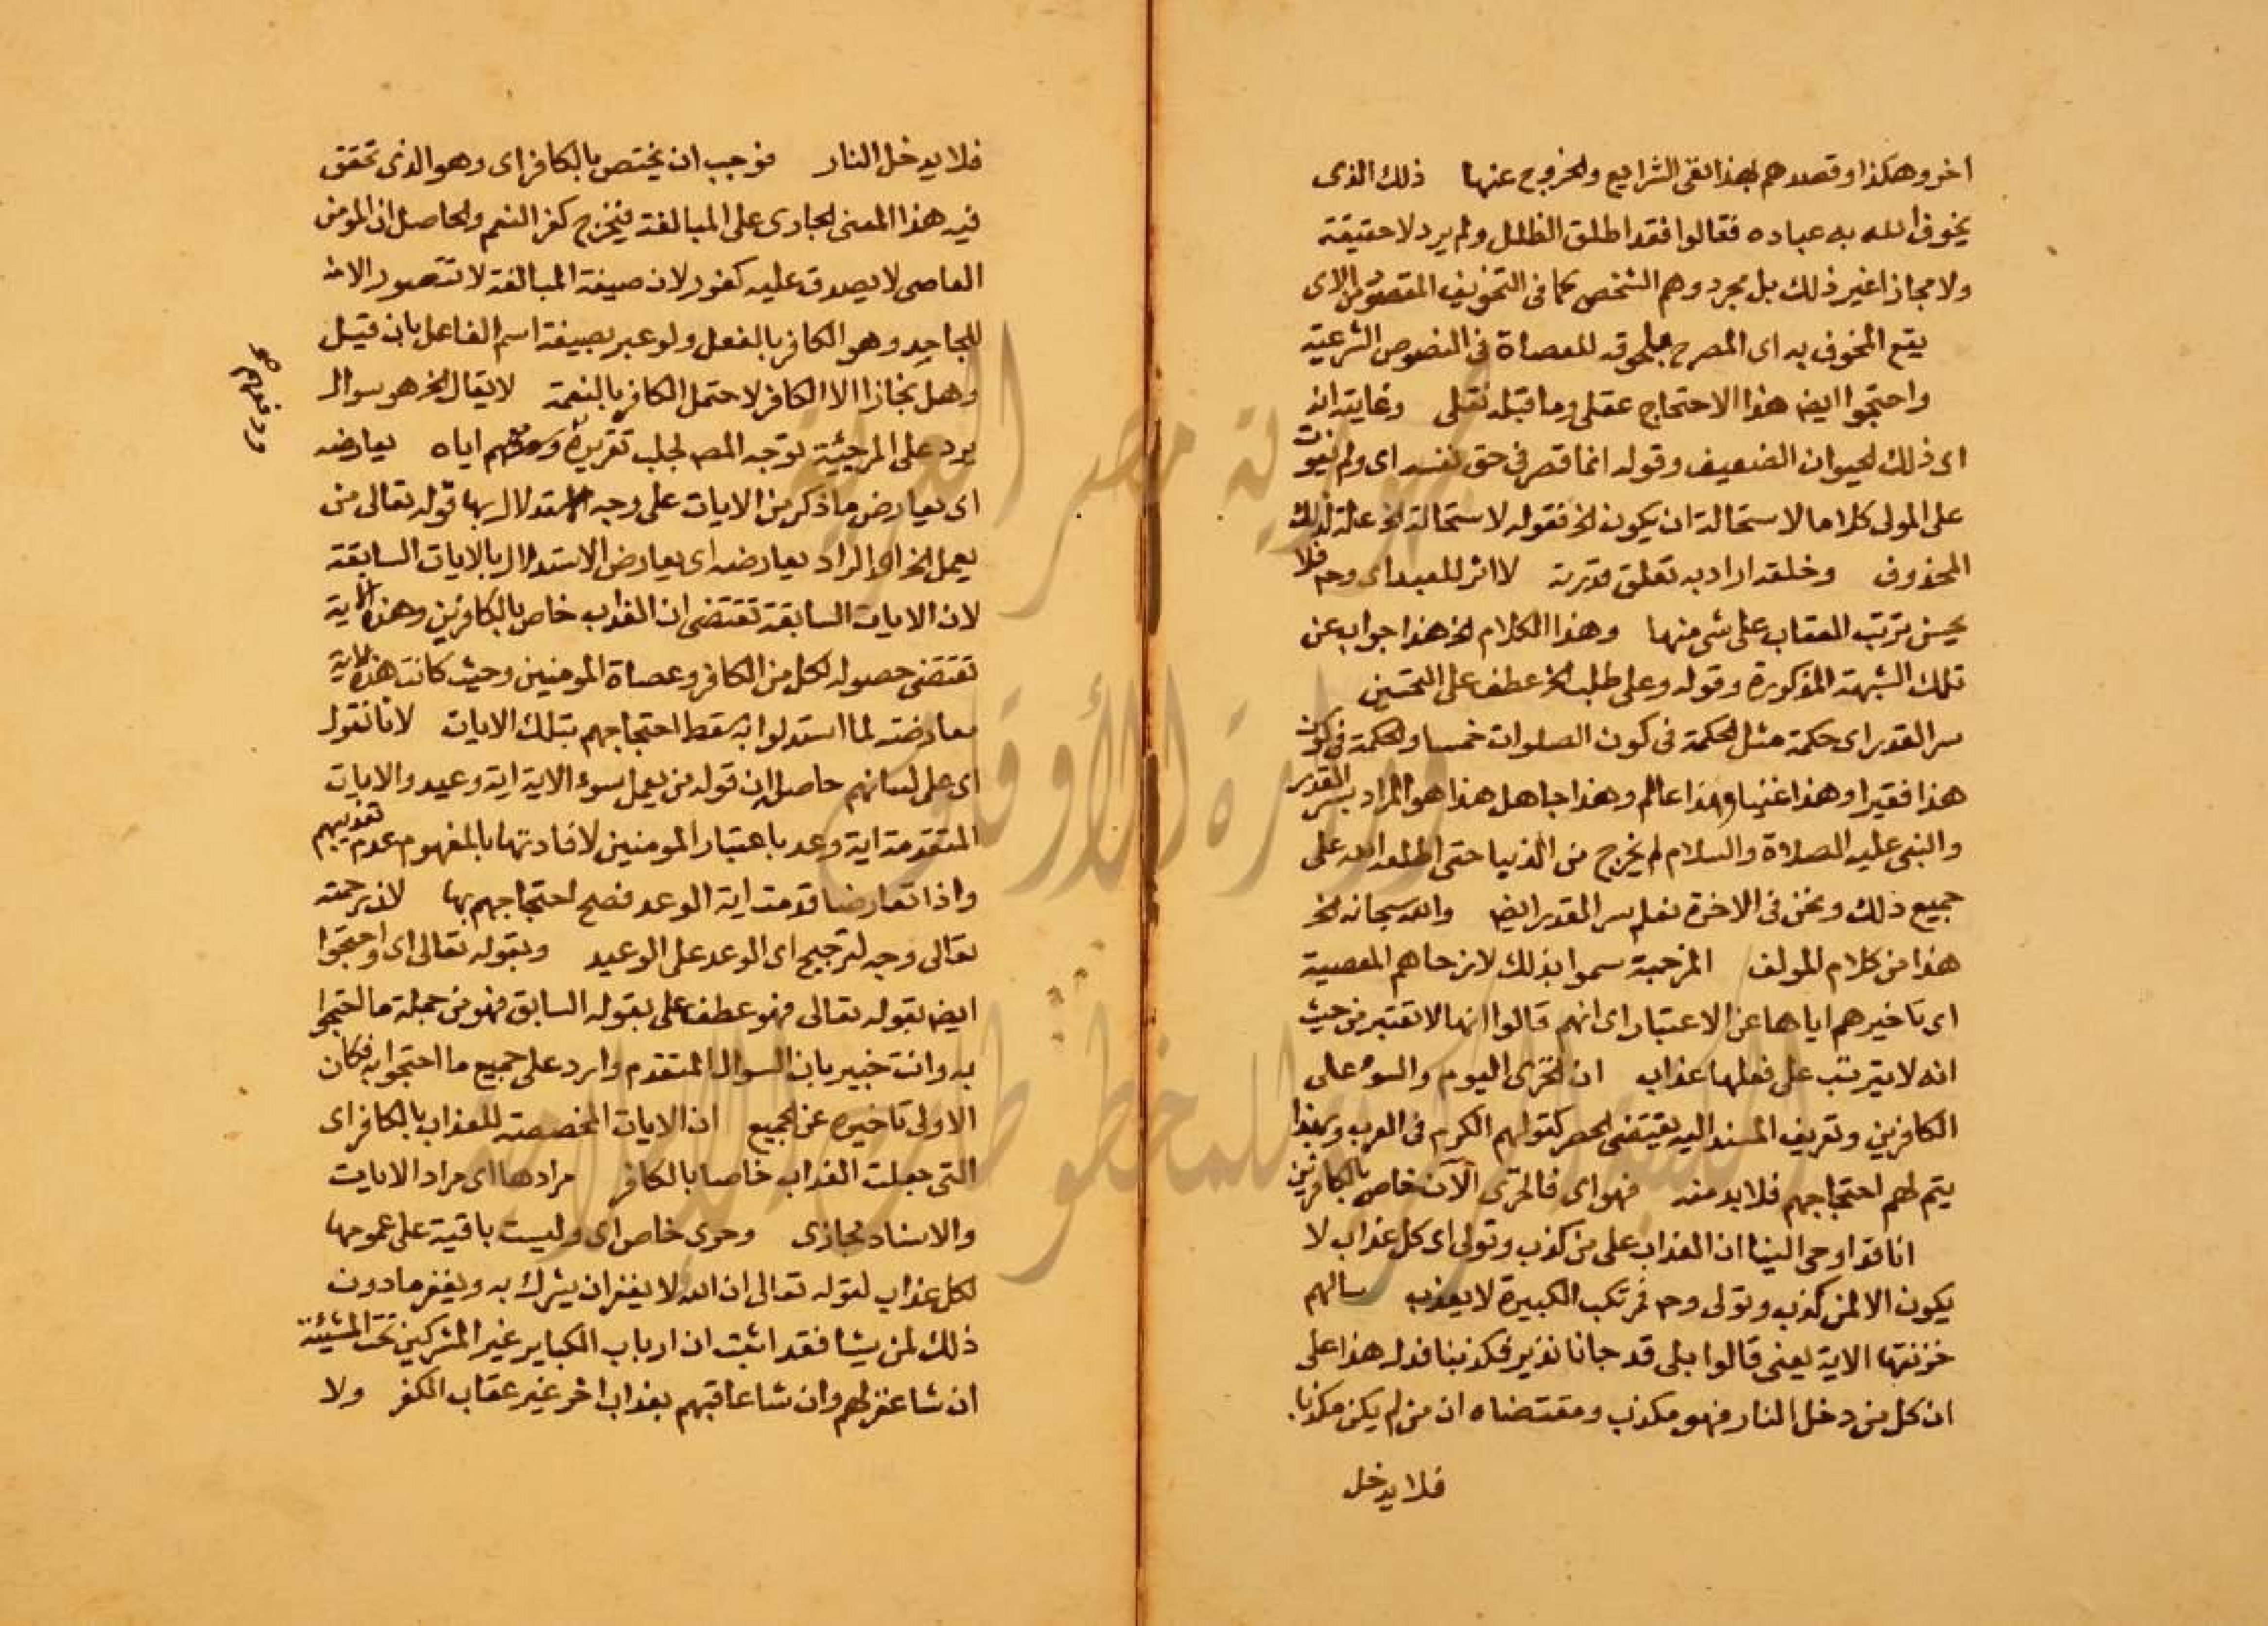 اخر وهكذا وقصدهم بهذا نفى الشرايع والخروج عنها ذلك الذى
يخوف الله به عباده فقالوا فقد اطلق الظلل ولم يرد لا حقيقة
ولا مجازا غير ذلك بل مجرد وهم الشخص كما فى التخويف المقصود من الاى
يقع المخوف به اى المصرح بلحوقه للعصاة فى النصوص الشرعية
واحتجوا ايضا هذا الاحتجاج عقلى وما قبله نقلى وغايته انه
اى ذلك الحيوان الضعيف وقوله انما قصر فى حق نفسه اى ولم يفوت
على المولى كلاما لاستحالة ان يكون الخ فقوله لاستحالة الخ علة لذلك
المحذوف وخلقه اراد به تعلق قدرته لا اثر للعبد اى وح فلا
يحسن ترتب العقاب على شى منها وهذا الكلام الخ هذا جواب عن
تلك الشبهة المذكورة وقوله وعلى طلب الخ عطف على التحسين
سر القدر اى حكمة مثل الحكمة فى كون الصلوات خمسا والحكمة فى كون
هذا فقيرا وهذا غنيا وهذا عالم وهذا جاهل هذا هو المراد بسر القدر
والنبى عليه الصلاة والسلام لم يخرج من الدنيا حتى اطلعه الله على
جميع ذلك ونحن فى الاخرة نعلم سر القدر ايضا والله سبحانه الخ
هذا من كلام المولف المرجية سموا بذلك لارجاهم المعصية
اى تاخيرهم اياها عن الاعتبار اى انهم قالوا انها لا تعتبر من حيث
انه لا يترتب على فعلها عذاب ان الخزى اليوم والسوء على
الكافرين وتعريف المسند اليه يقتضى الحصر كقولهم الكرم فى العرب وبهذا
يتم لهم احتجاجهم فلا بد منه فهو اى فالخزى الآن خاص بالكافرين
انا قد اوحى الينا ان العذاب على من كذب وتولى اى كل عذاب لا
يكون الا لمن كذب وتولى وح فمرتكب الكبيرة لا يعذب سالهم
خزنتها الاية يعنى قالوا بلى قد جانا نذير فكذبنا فدل هذا على
ان كل من دخل النار فهو مكذب ومقتضاه ان من لم يكن مكذبا
فلا يدخل
فلا يدخل النار فوجب ان يختص بالكافر اى وهو الذى تحقق
فيه هذا المعنى الجارى على المبالغة فيخرج كفر النعم والحاصل ان المومن
العاصى لا يصدق عليه كفور لان صيغة المبالغة لا تتصور الا منه
للجاحد وهو الكافر بالفعل ولو عبر بصيغة اسم الفاعل بان قيل
وهل نجازا الا الكافر لاحتمل الكافر بالنعمة لا يقال الخ هو سوال
يرد على المرجئة توجه المص لجلب تقريره اياه يعارضه
اى يعارض ما ذكر من الايات على وجه الاستدلال بها قوله تعالى من
يعمل الخ او المراد يعارضه اى يعارض الاستدلال بالايات السابقة
لان الايات السابقة تقتضى ان العذاب خاص بالكافرين وهذه الاية
تقتضى حصوله لكل من الكافر وعصاة المومنين وحيث كانت هذه الاية
معارضة لما استدلوا به سقط احتجاجهم بتلك الايات لانا نقول
اى على لسانهم حاصله ان قوله من يعمل سوء الاية اية وعيد والايات
المتقدمة اية وعد باعتبار المومنين لافادتها بالمفهوم عدم تعذيبهم
واذا تعارضا قدمت اية الوعد فصح احتجاجهم بها لان رحمته
تعالى وجه لترجيح اى الوعد على الوعيد وبقوله تعالى اى واحتجوا
ايضا بقوله تعالى فهو عطف على بقوله السابق فهو من جملة ما احتجوا
به وانت خبير بان السوال المتقدم وارد على جميع ما احتجوا به فكان
الاولى تاخيره عن الجميع ان الايات المخصصة للعذاب بالكافر اى
التى جعلت العذاب خاصا بالكافر مرادها اى مراد الايات
والاسناد مجازى وخزى خاص اى وليست باقية على عمومها
لكل عذاب لقوله تعالى ان الله لا يغفر ان يشرك به ويغفر ما دون
ذلك لمن يشا فقد اثبت ان ارباب الكباير غير المشركين تحت المشيئة
ان شا غفر لهم وان شا عاقبهم بعذاب اخر غير عقاب الكفر ولا
جمهورية مصر العربية
وزارة الأوقاف
المكتبة المركزية للمخطوطات الإسلامية